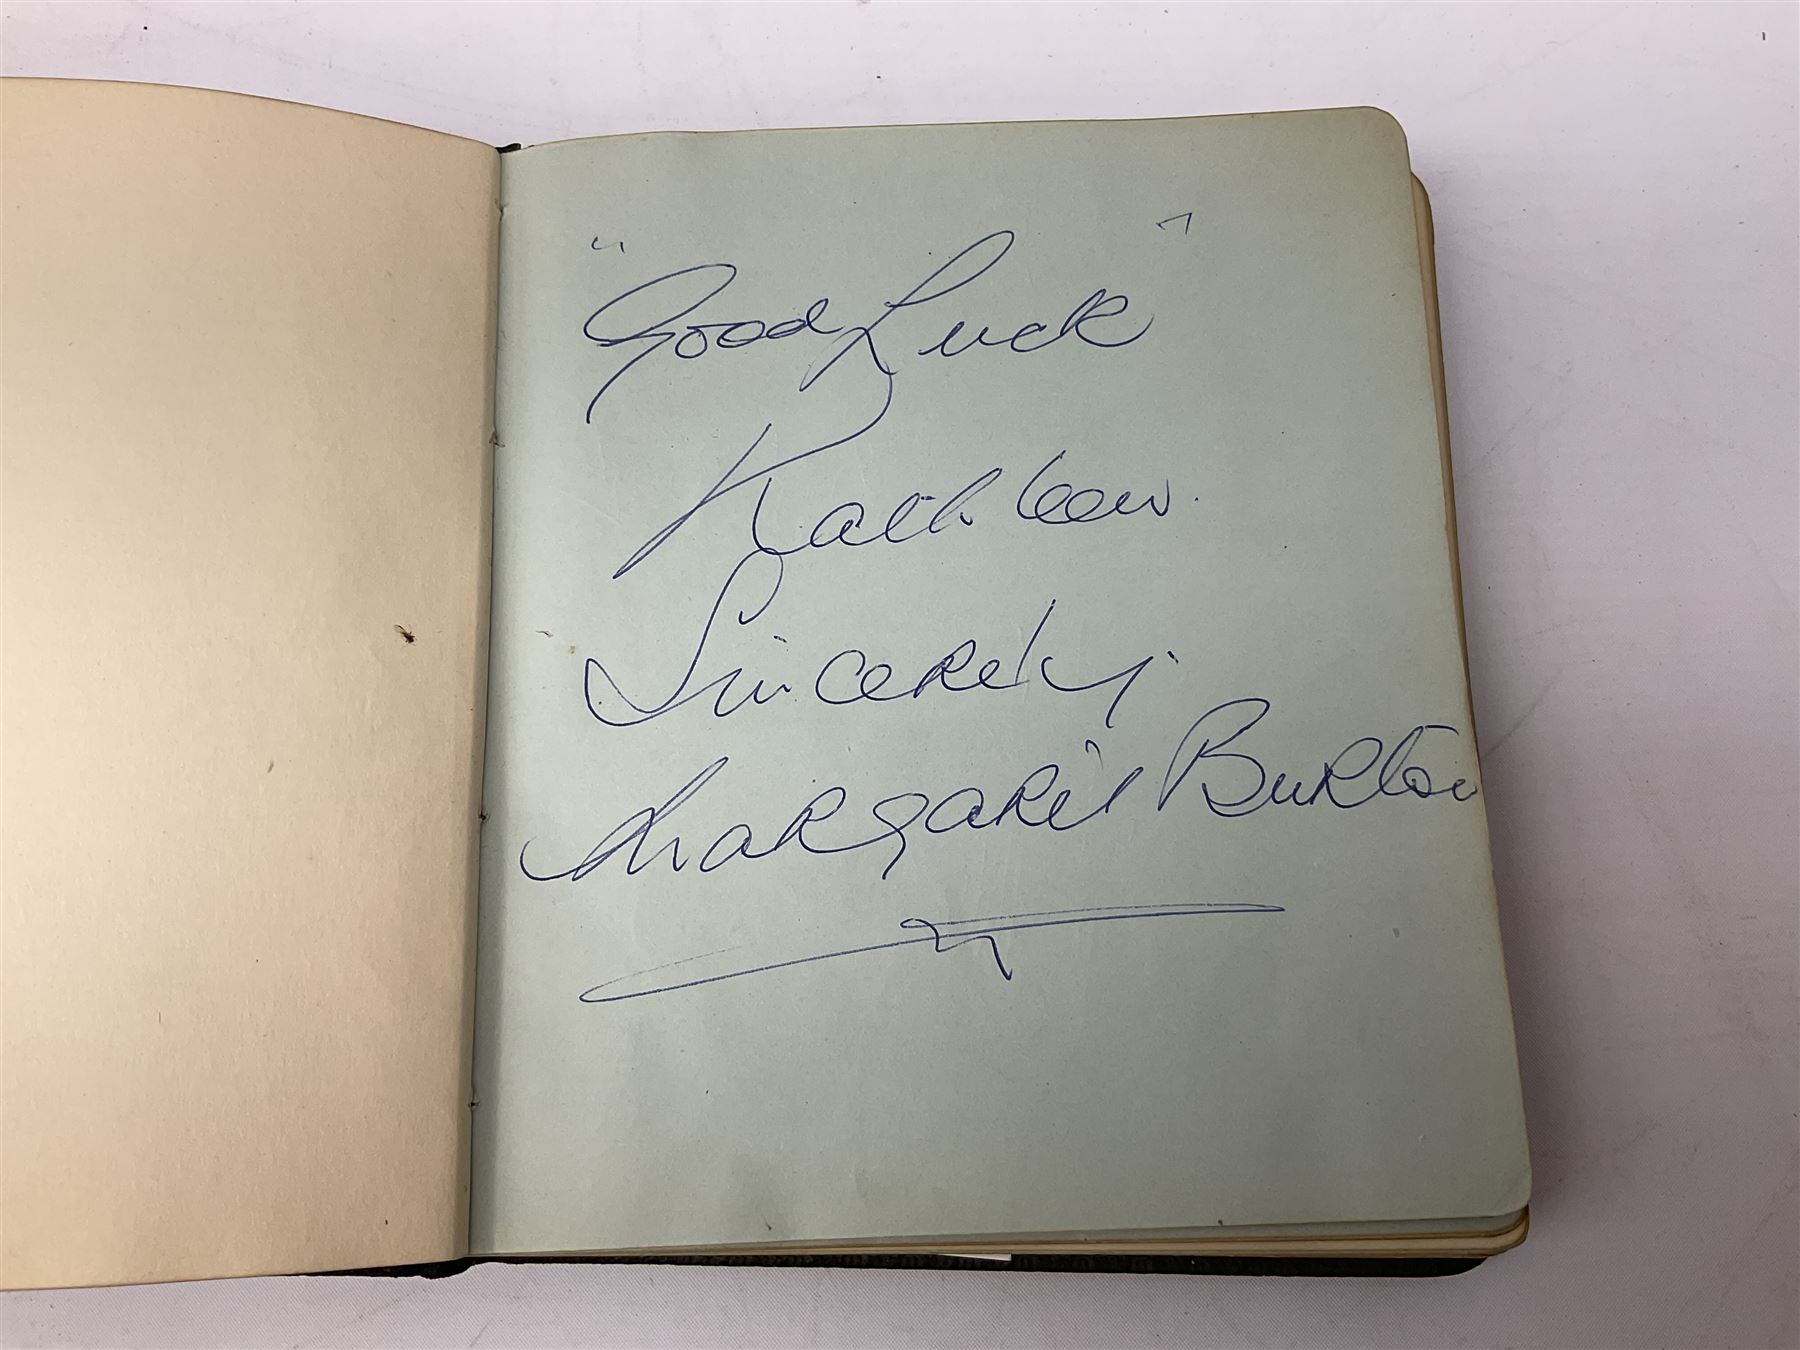 "Good Luck"
Kathleen.
Sincerely,
Margaret Burton